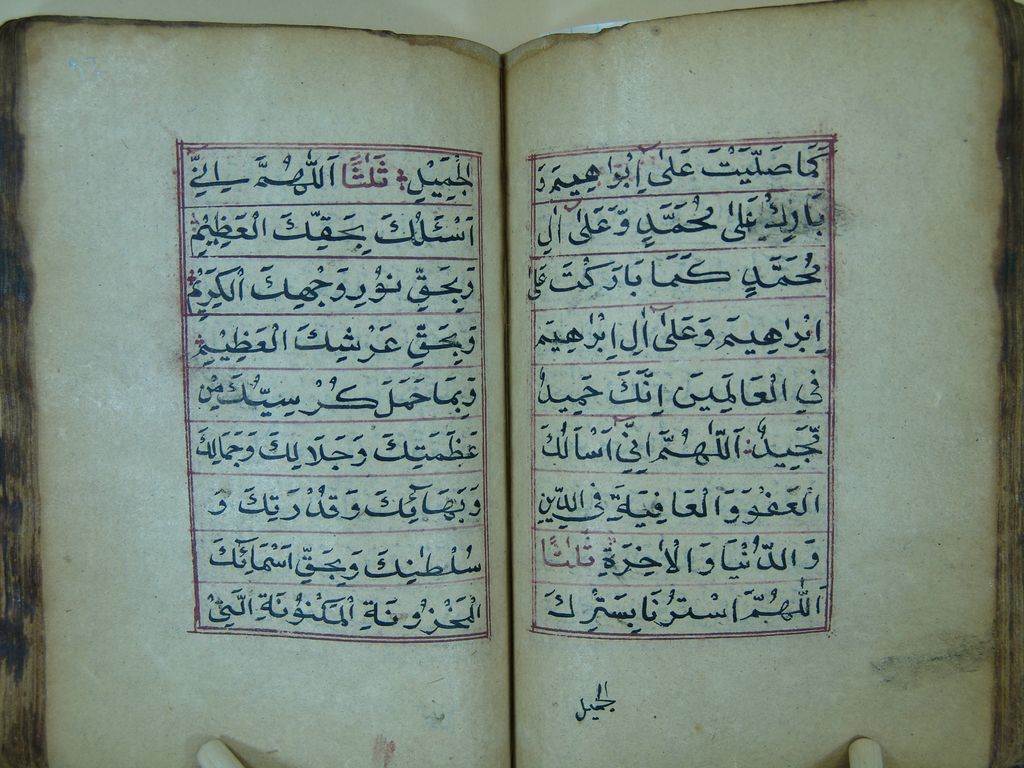 كَمَا صَلَّيْتَ عَلٰى اِبْرَاهِيمَ وَ
بَارِكْ عَلٰى مُحَمَّدٍ وَّعَلٰى اٰلِ
مُحَمَّدٍ كَمَا بَارَكْتَ عَلٰى
اِبْرٰاهِيمَ وَعَلٰى اٰلِ اِبْرٰاهِيمَ
فِي الْعَالَمِينَ اِنَّكَ حَمِيدٌ
مَّجِيدٌ اَللّٰهُمَّ اِنِّي اَسْاَلُكَ
الْعَفْوَ وَالْعَافِيَةَ فِي الدِّينِ
وَالدُّنْيَا وَالْاٰخِرَةِ ثَلٰثًا
اَللّٰهُمَّ اسْتُرْنَا بِسَتْرِكَ
الجميل
الْجَمِيْلِ ثَلٰثًا اَللّٰهُمَّ اِنِّيْ
اَسْئَلُكَ بِحَقِّكَ الْعَظِيْمِ
وَبِحَقِّ نُوْرِ وَجْهِكَ الْكَرِيْمِ
وَبِحَقِّ عَرْشِكَ الْعَظِيْمِ
وَبِمَا حَمَلَ كُرْسِيُّكَ مِنْ
عَظَمَتِكَ وَجَلَالِكَ وَجَمَالِكَ
وَبَهَائِكَ وَقُدْرَتِكَ وَ
سُلْطٰنِكَ وَبِحَقِّ اَسْمَائِكَ
الْمَخْزُونَةِ الْمَكْنُونَةِ الَّتِيْ